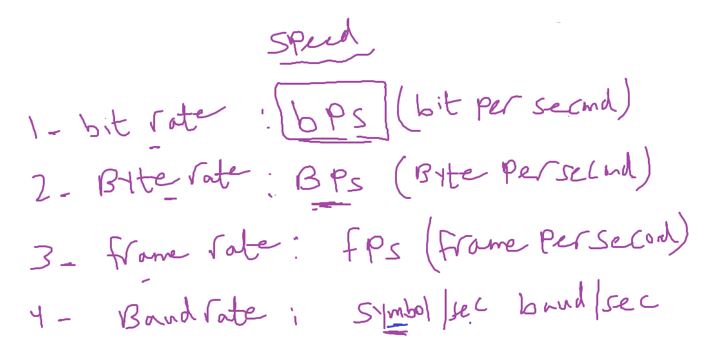 Speed
1- bit rate : bPs (bit per second)
2- Byte rate : BPs (Byte Per second)
3- frame rate : fPs (frame Per second)
4- Baud rate : Symbol/sec baud/sec